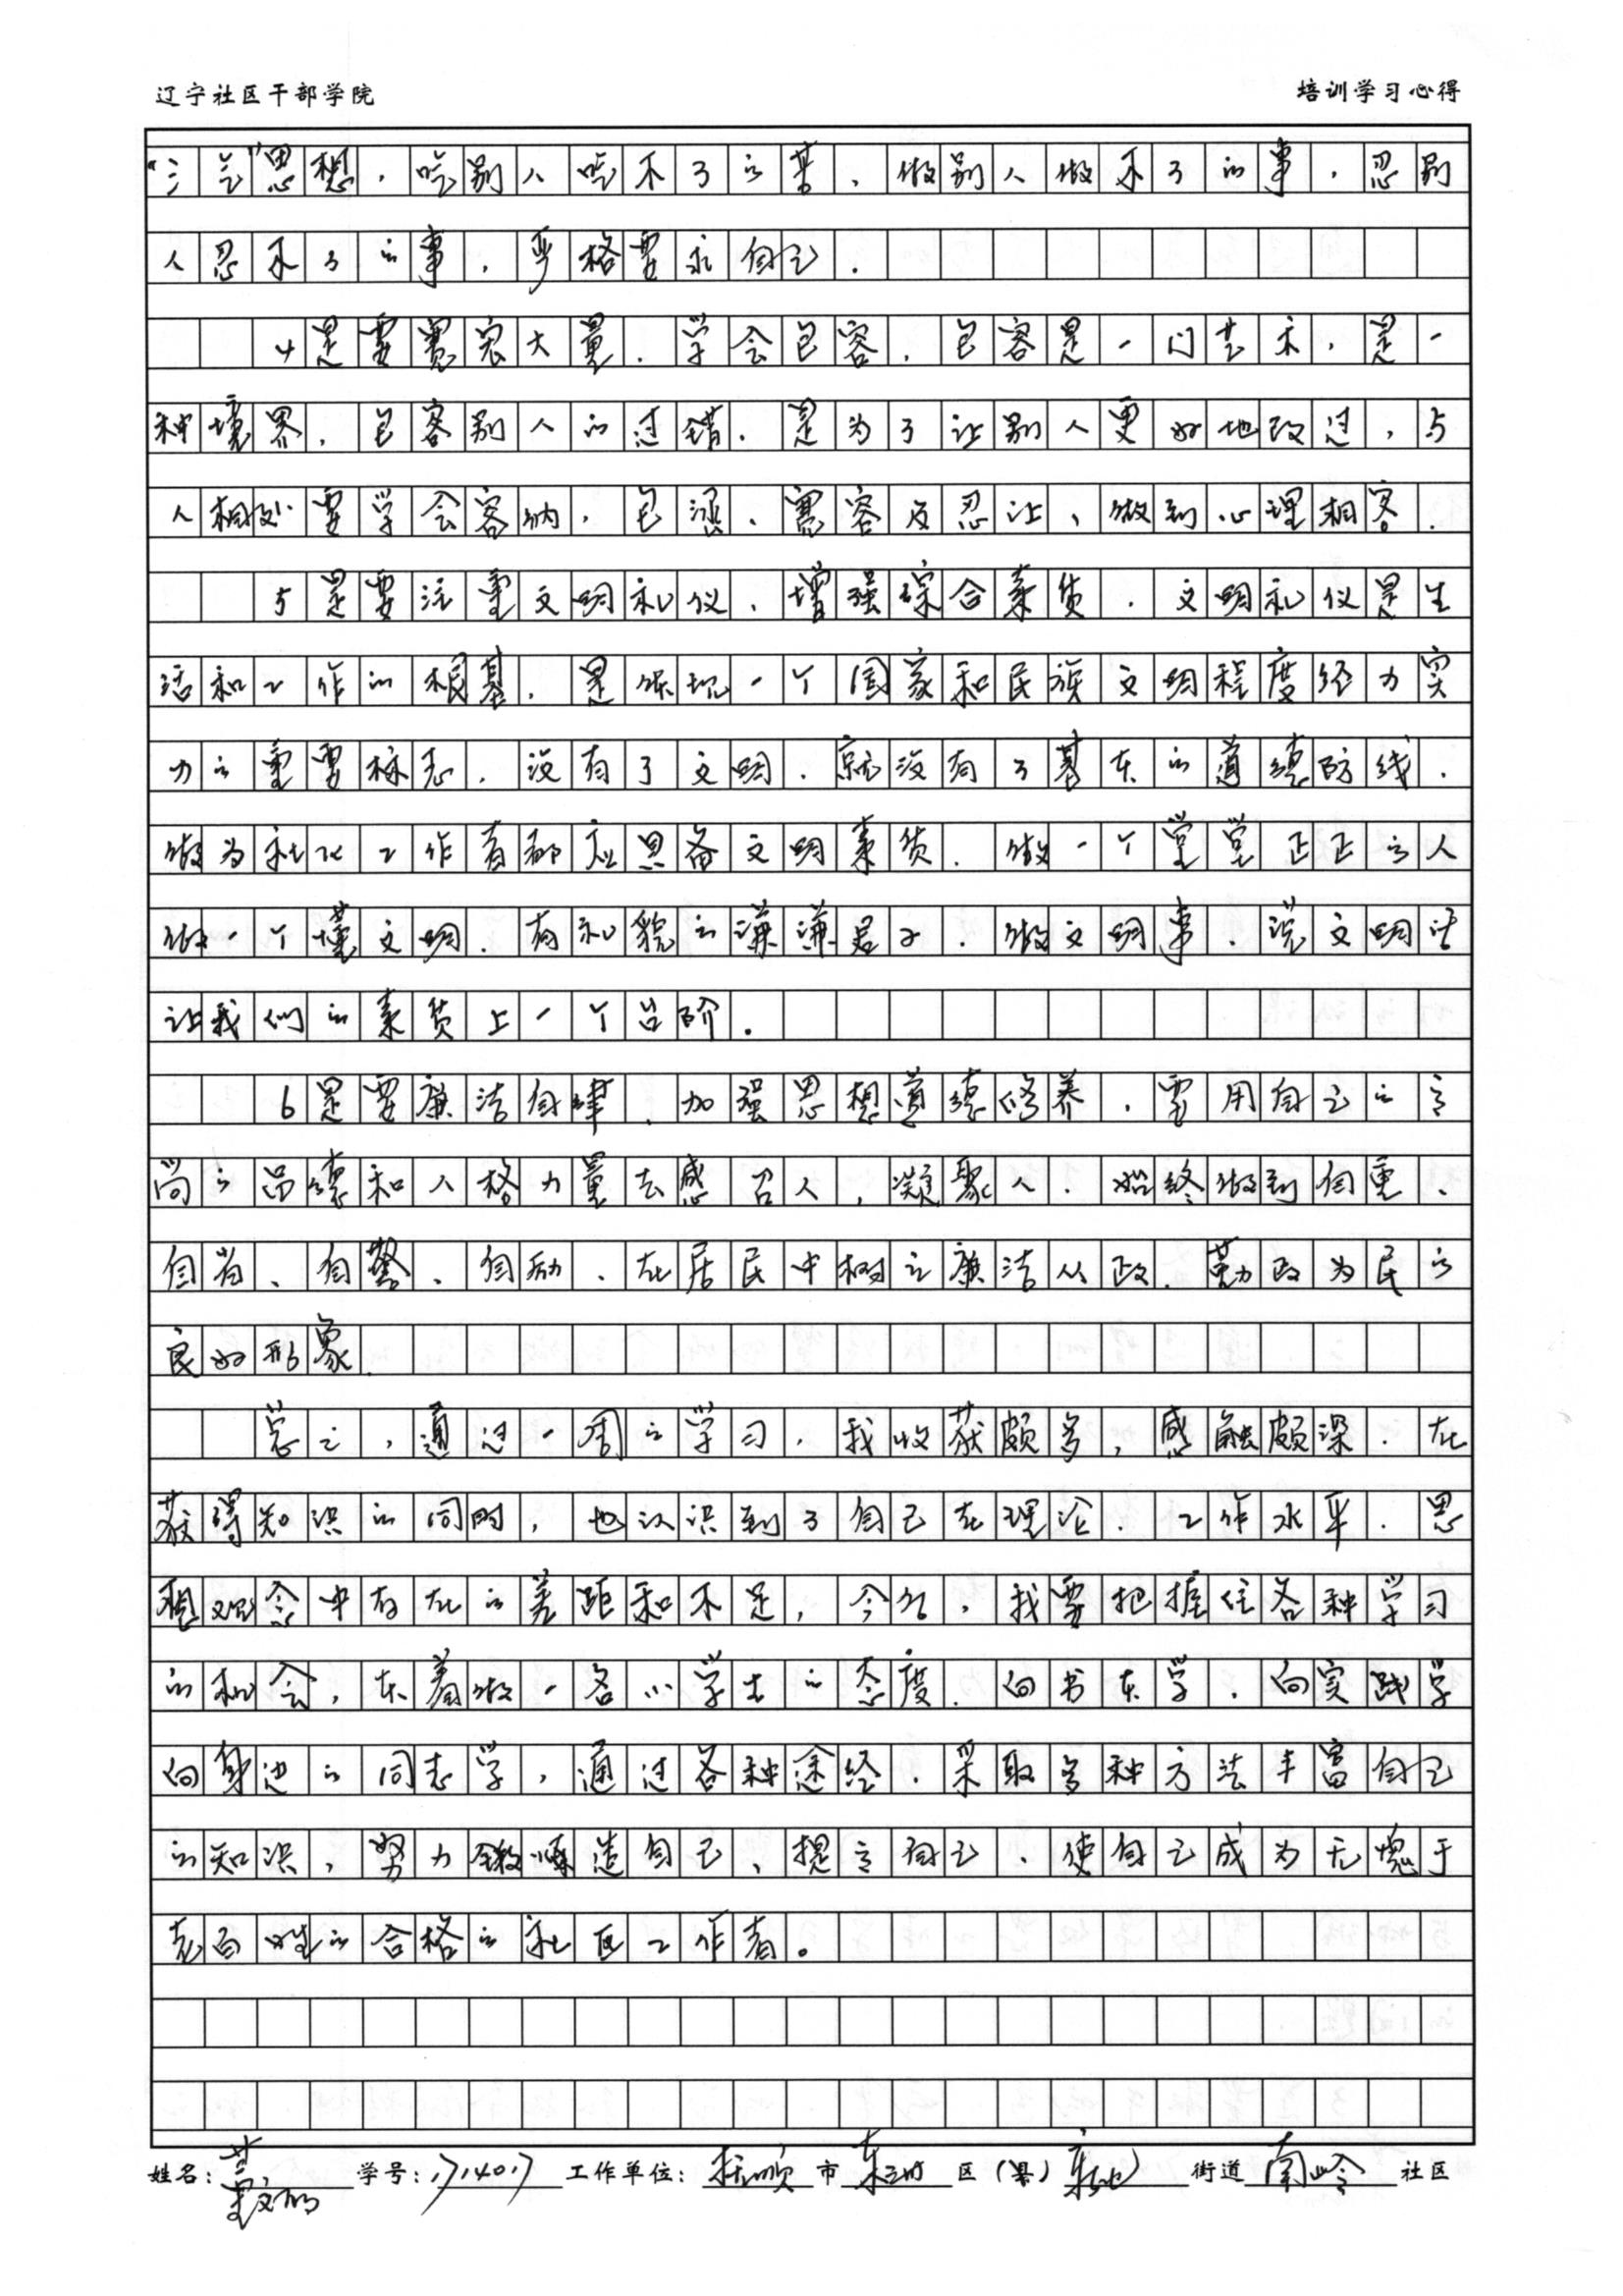 辽宁社区干部学院 培训学习心得
“三气”思想,吃别人吃不了的苦、做别人做不了的事,忍别
人忍不了的事,严格要求自己.
4是要宽宏大量.学会包容.包容是一门艺术,是一
种境界,包容别人的过错.是为了让别人更好地改过,与
人相处要学会容纳,包涵、宽容及忍让,做到心理相容.
5是要注重文明礼仪、增强综合素质.文明礼仪是生
活和工作的根基.是体现一个国家和民族文明程度经力实
力的重要标志.没有了文明.就没有了基本的道德防线.
做为社化工作者都应具备文明素质.做一个堂堂正正的人
做一个懂文明、有礼貌的谦谦君子.做文明事.说文明话
让我们的素质上一个台阶.
6是要廉洁自律.加强思想道德修养,要用自己的高
尚的品德和人格力量去感召人,凝聚人.始终做到自重、
自省、自警、自励、在居民中树立廉洁从政.勤政为民的
良好形象.
总之,通过一周的学习,我收获颇多,感触颇深.在
获得知识的同时,也认识到了自己在理论、工作水平.思
想观念中存在的差距和不足,今后,我要把握住各种学习
的机会,本着做一名小学生的态度.向书本学.向实践学
向身边的同志学,通过各种途经.采取多种方法丰富自己
的知识,努力锻炼造自己、提高自己.使自己成为无愧于
老百姓的合格的社区工作者。
姓名: 学号:1714017 工作单位:抚顺市东洲区(县)街道南岭社区